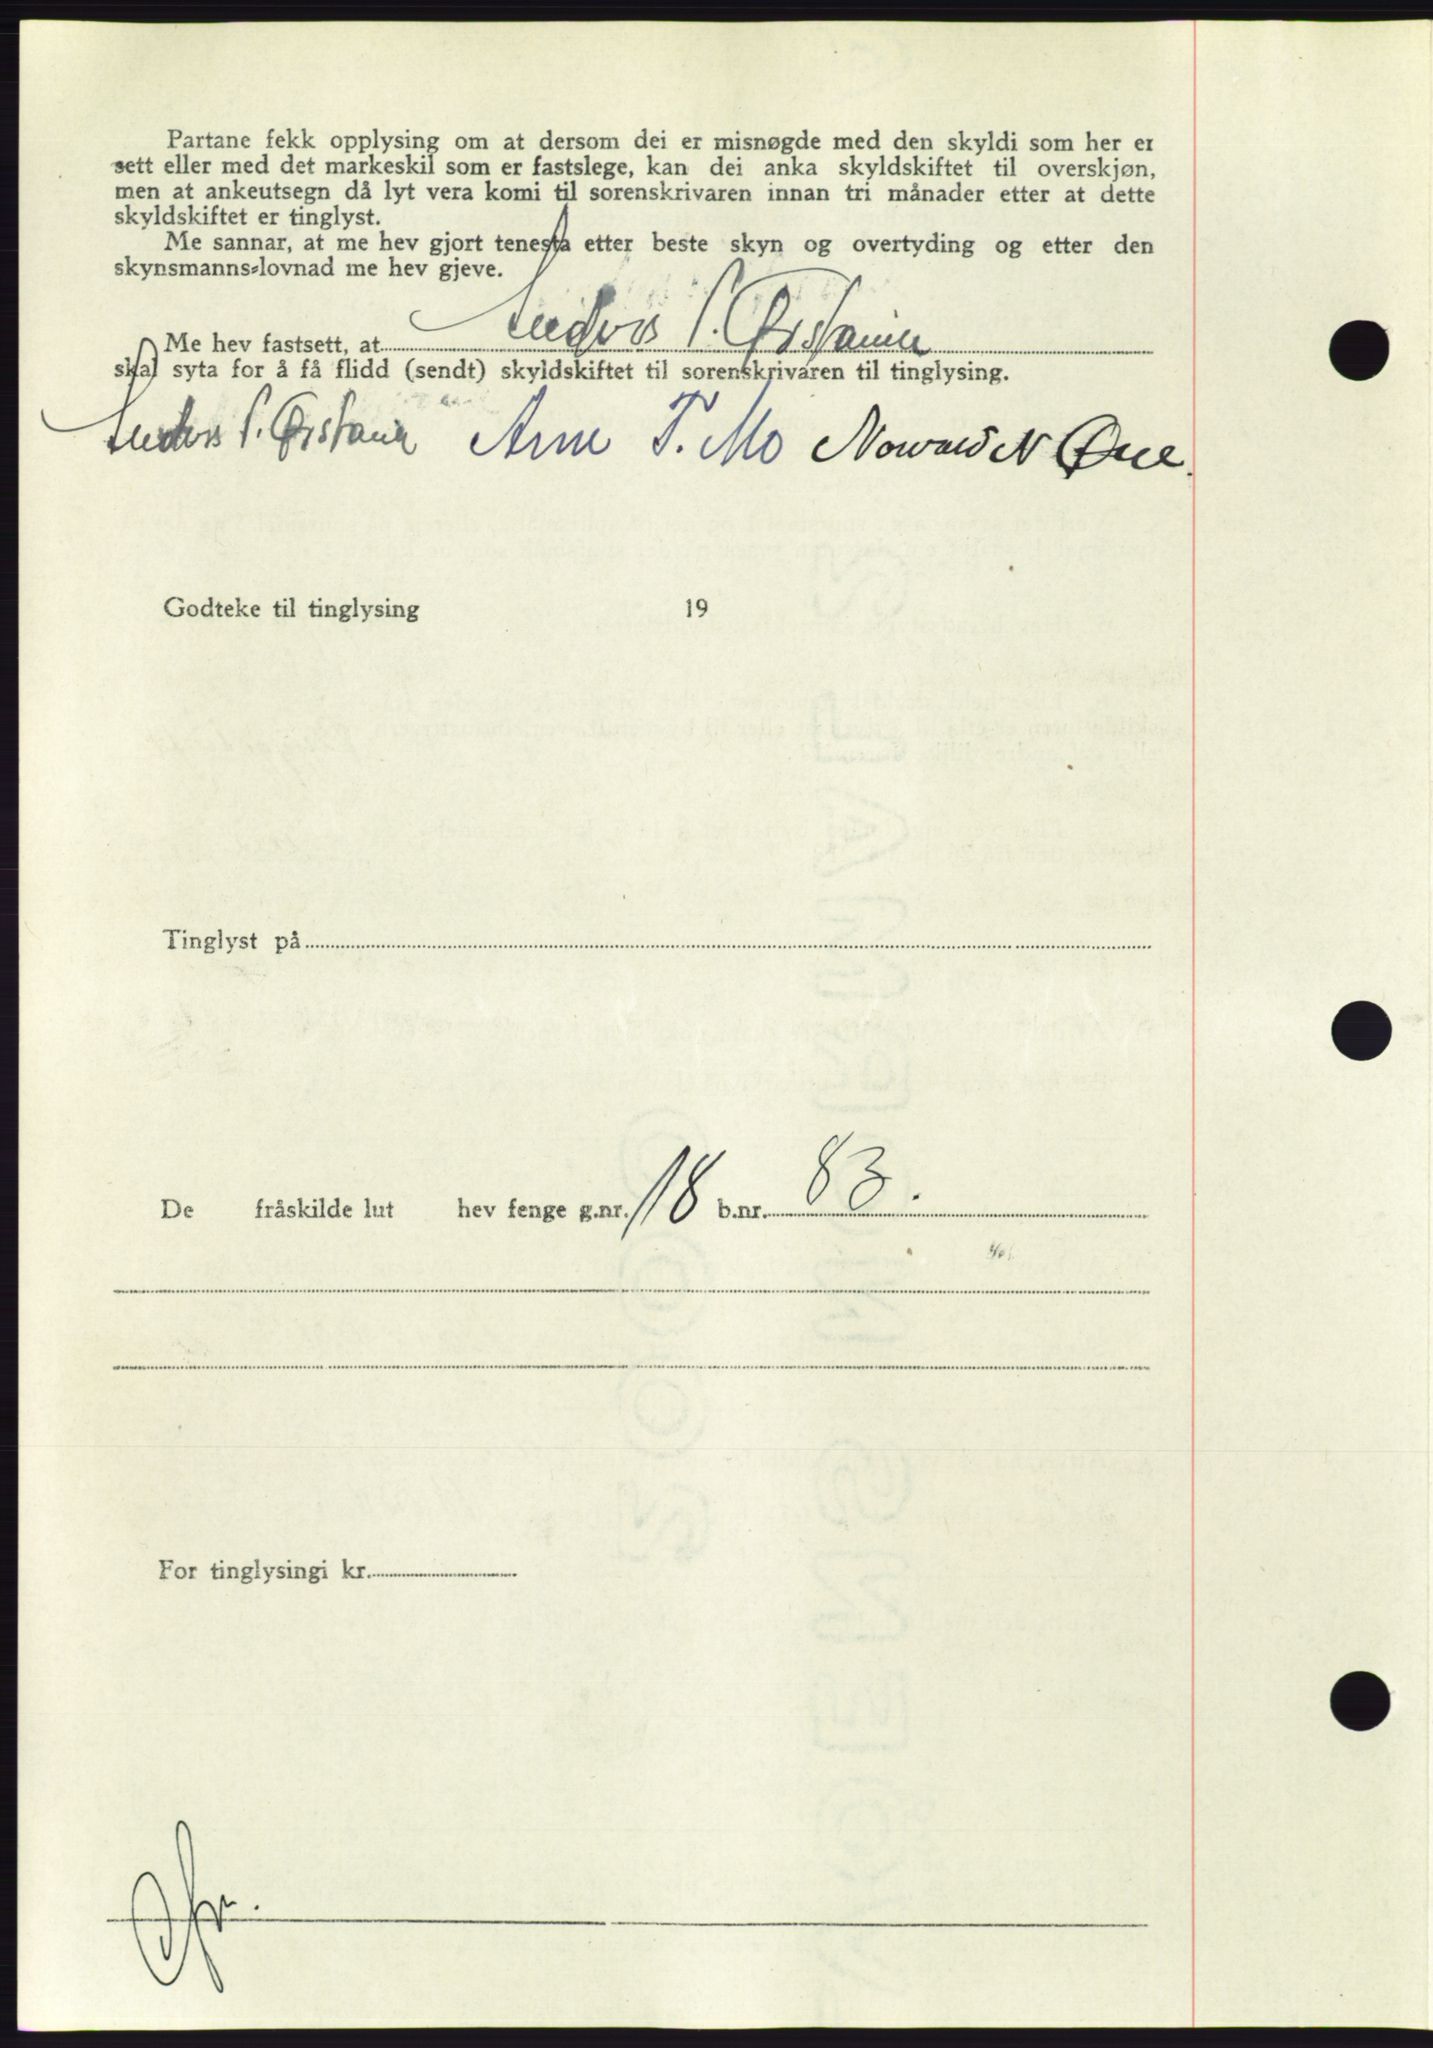 Partane fekk opplysing om at dersom dei er misnøgde med den skyldi som her er
sett eller med det markeskil som er fastslege, kan dei anka skyldskiftet til overskjøn,
men at ankeutsegn då lyt vera komi til sorenskrivaren innan tri månader etter at dette
skyldskiftet er tinglyst.
Me sannar, at me hev gjort tenesta etter beste skyn og overtyding og etter den
skynsmanns-lovnad me hev gjeve.
Me hev fastsett, at Anders P. Ørstavik
skal syta for å få flidd (sendt) skyldskiftet til sorenskrivaren til tinglysing.
Anders P. Ørstavik Arne T. Mo N Øye
Godteke til tinglysing 19
Tinglyst på
De fråskilde lut hev fenge g.nr. 18 b.nr. 83.
For tinglysingi kr.